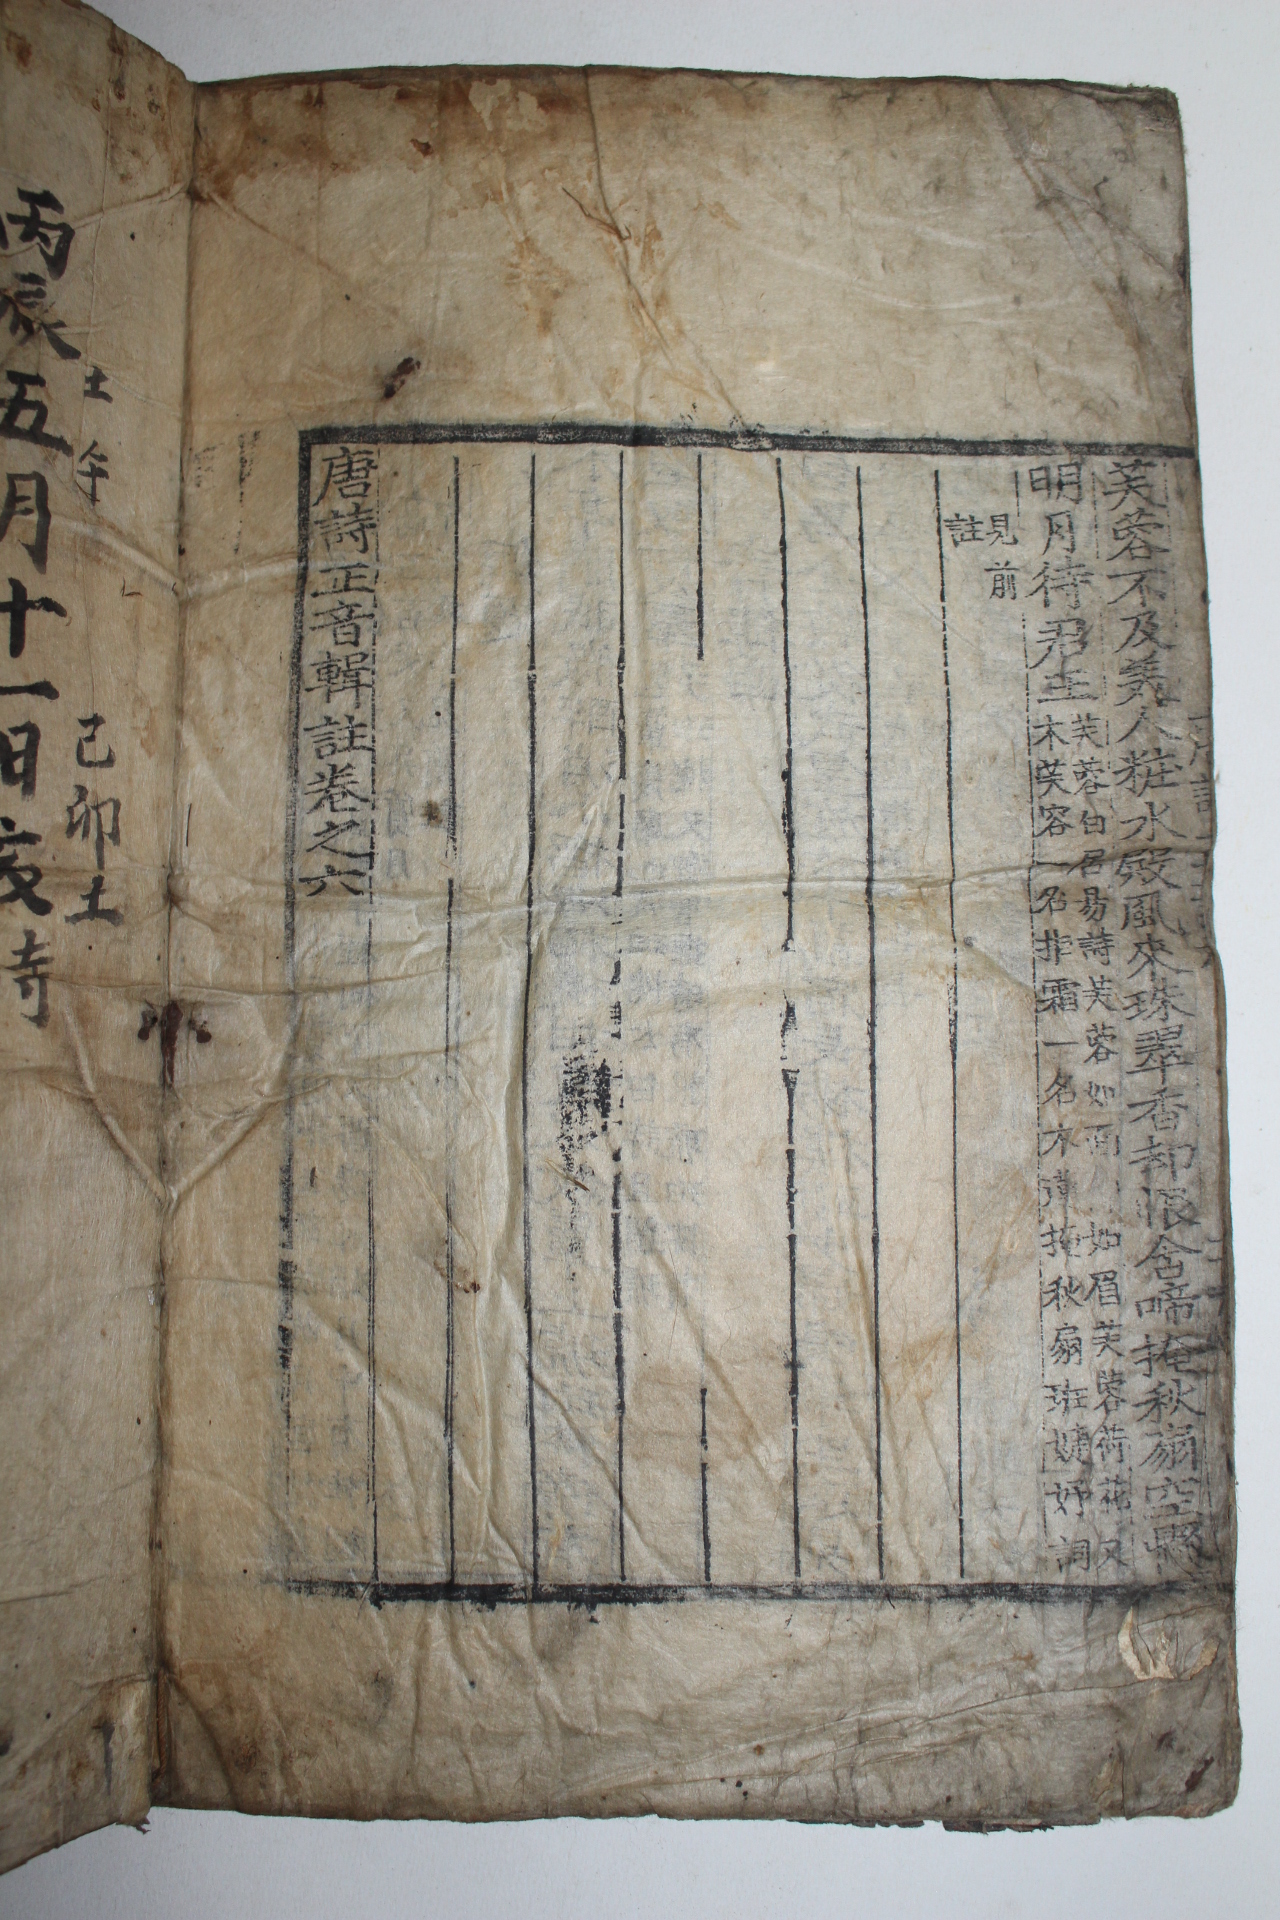 芙蓉不及美人粧水殿風來珠翠香却恨含啼掩秋扇空懸
明月待君王
芙蓉白居易詩芙蓉如面 如眉芙蓉荷花又
木芙容一名拒霜一名木 掩秋扇班婕妤詞
見前
註
唐詩正音輯註卷之六
己卯土
丙辰五月十一日亥寺